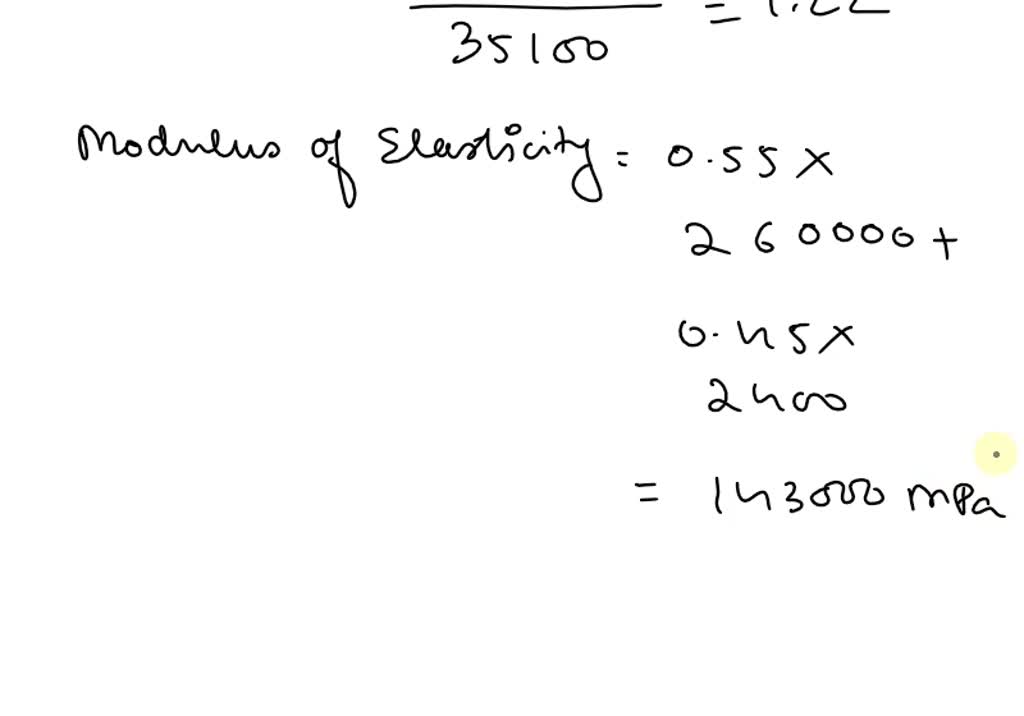 = 1.22
35100
Modulus of Elasticity = 0.55 x
260000 +
0.45 x
2400
= 143000 mPa